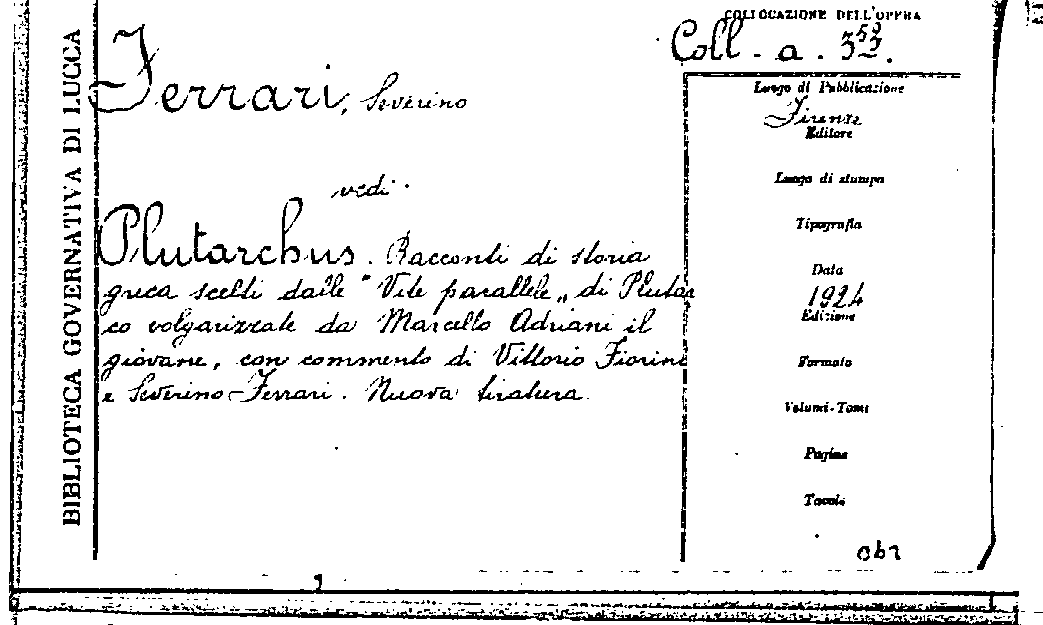 BIBLIOTECA GOVERNATIVA DI LUCCA
COLLOCAZIONE DELL'OPERA
Coll. a.
Ferrari, Severino
vedi.
Plutarchus. Racconti di storia
greca scelti dalle "Vite parallele" di Plutar
co volgarizzate da Marcello Adriani il
giovane, con commento di Vittorio Fiorini
e Severino Ferrari. Nuova tiratura.
Luogo di Pubblicazione
Firenze
Editore
Luogo di stampa
Tipografia
Data
1924
Edizione
Formato
Volumi-Tomi
Pagine
Tavole